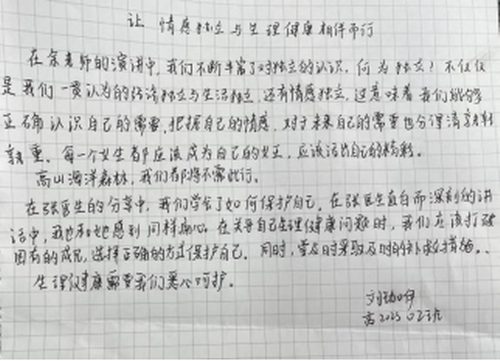 让情感独立与生理健康相伴而行
在余老师的演讲中,我们不断丰富了对独立的认识。何为独立?不仅仅
是我们一贯认为的经济独立与生活独立,还有情感独立,这意味着我们能够
正确认识自己的需要,把握自己的情感,对于未来自己的需要也分得清孰轻
孰重。每一个女生都应该成为自己的女王,应该活出自己的精彩。
高山海洋森林,我们都将不需此行。
在张医生的分享中,我们学会了如何保护自己。在张医生直白而深刻的讲
话中,我也和她感到同样痛心。在关乎自己生理健康问题时,我们应该打破
固有的成见,选择正确的方式保护自己。同时,学会及时采取及时的补救措施。
生理健康需要我们悉心呵护。
高2023 02班